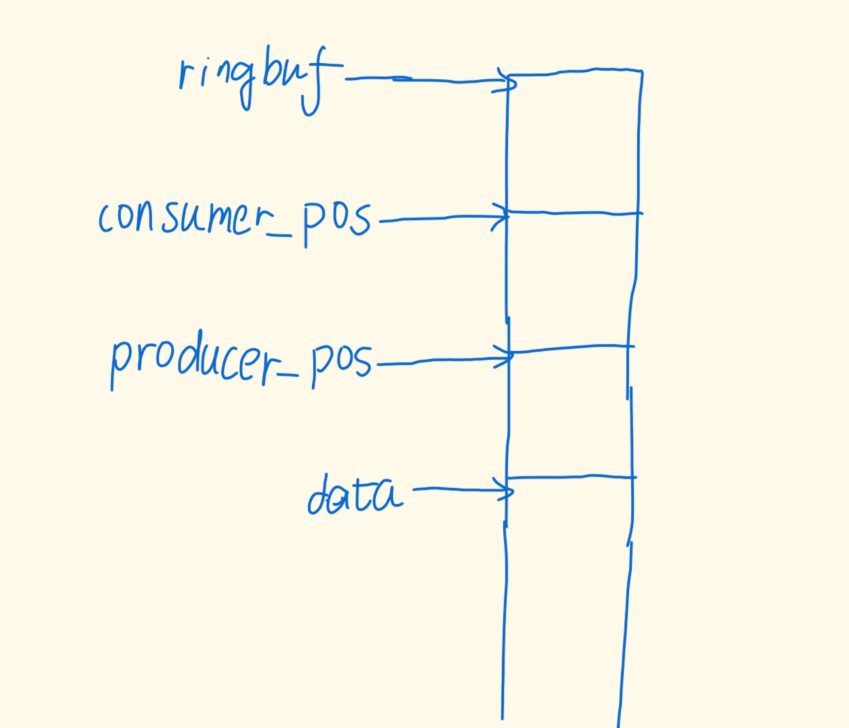 ringbuf
consumer_pos
producer_pos
data